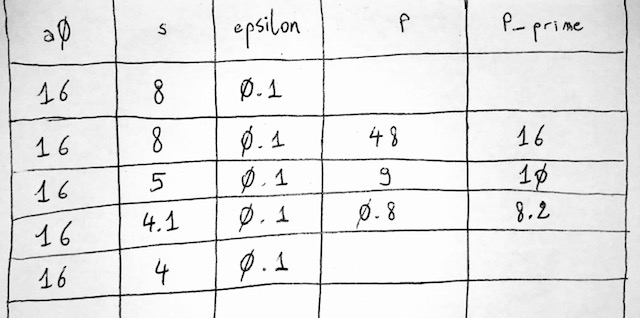 aØ s epsilon P P_prime
16 8 Ø.1
16 8 Ø.1 48 16
16 5 Ø.1 9 1Ø
16 4.1 Ø.1 Ø.8 8.2
16 4 Ø.1